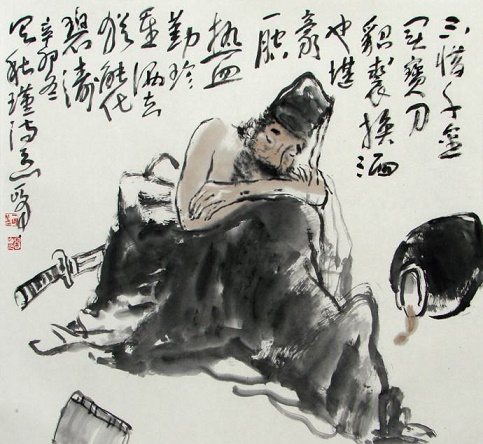 不惜千金
买寶刀
貂裘换酒
也堪
豪
一腔
热血
勤珍
重洒去
犹能化
碧涛
辛卯冬
写秋瑾诗意